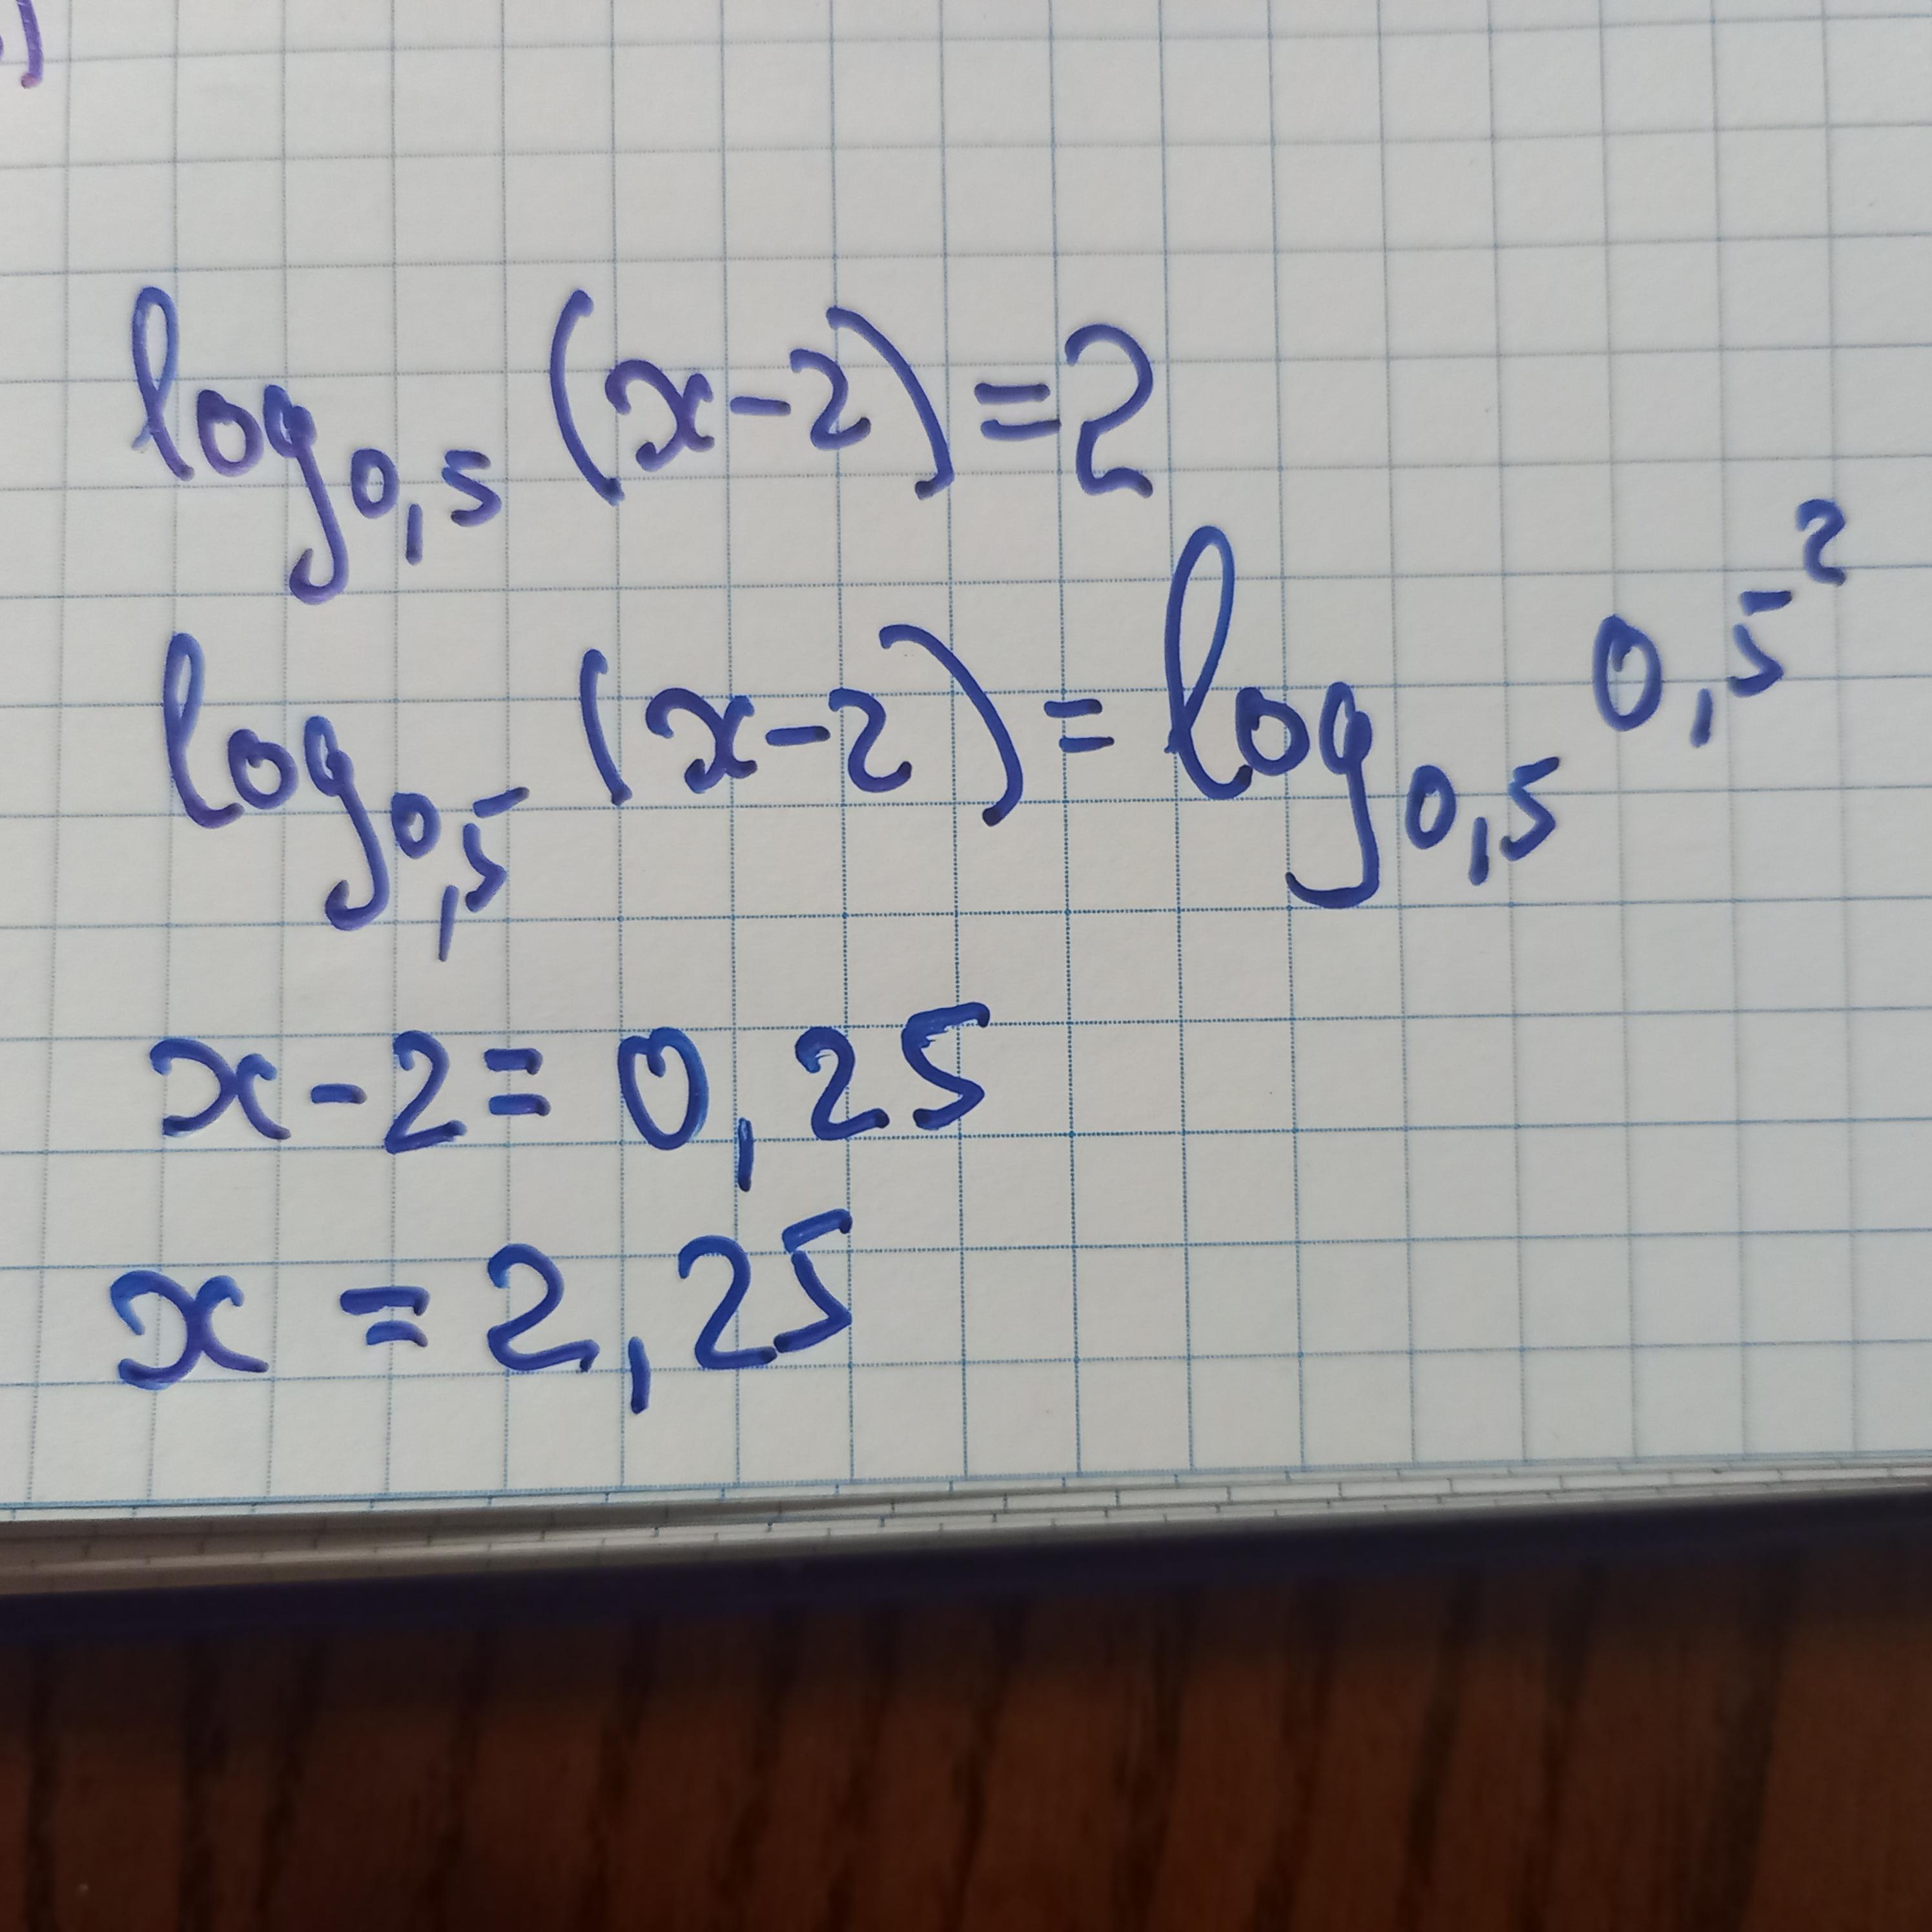 log₀,₅ (x-2)=2
log₀,₅ (x-2) = log₀,₅ 0,5²
x-2= 0,25
x = 2,25